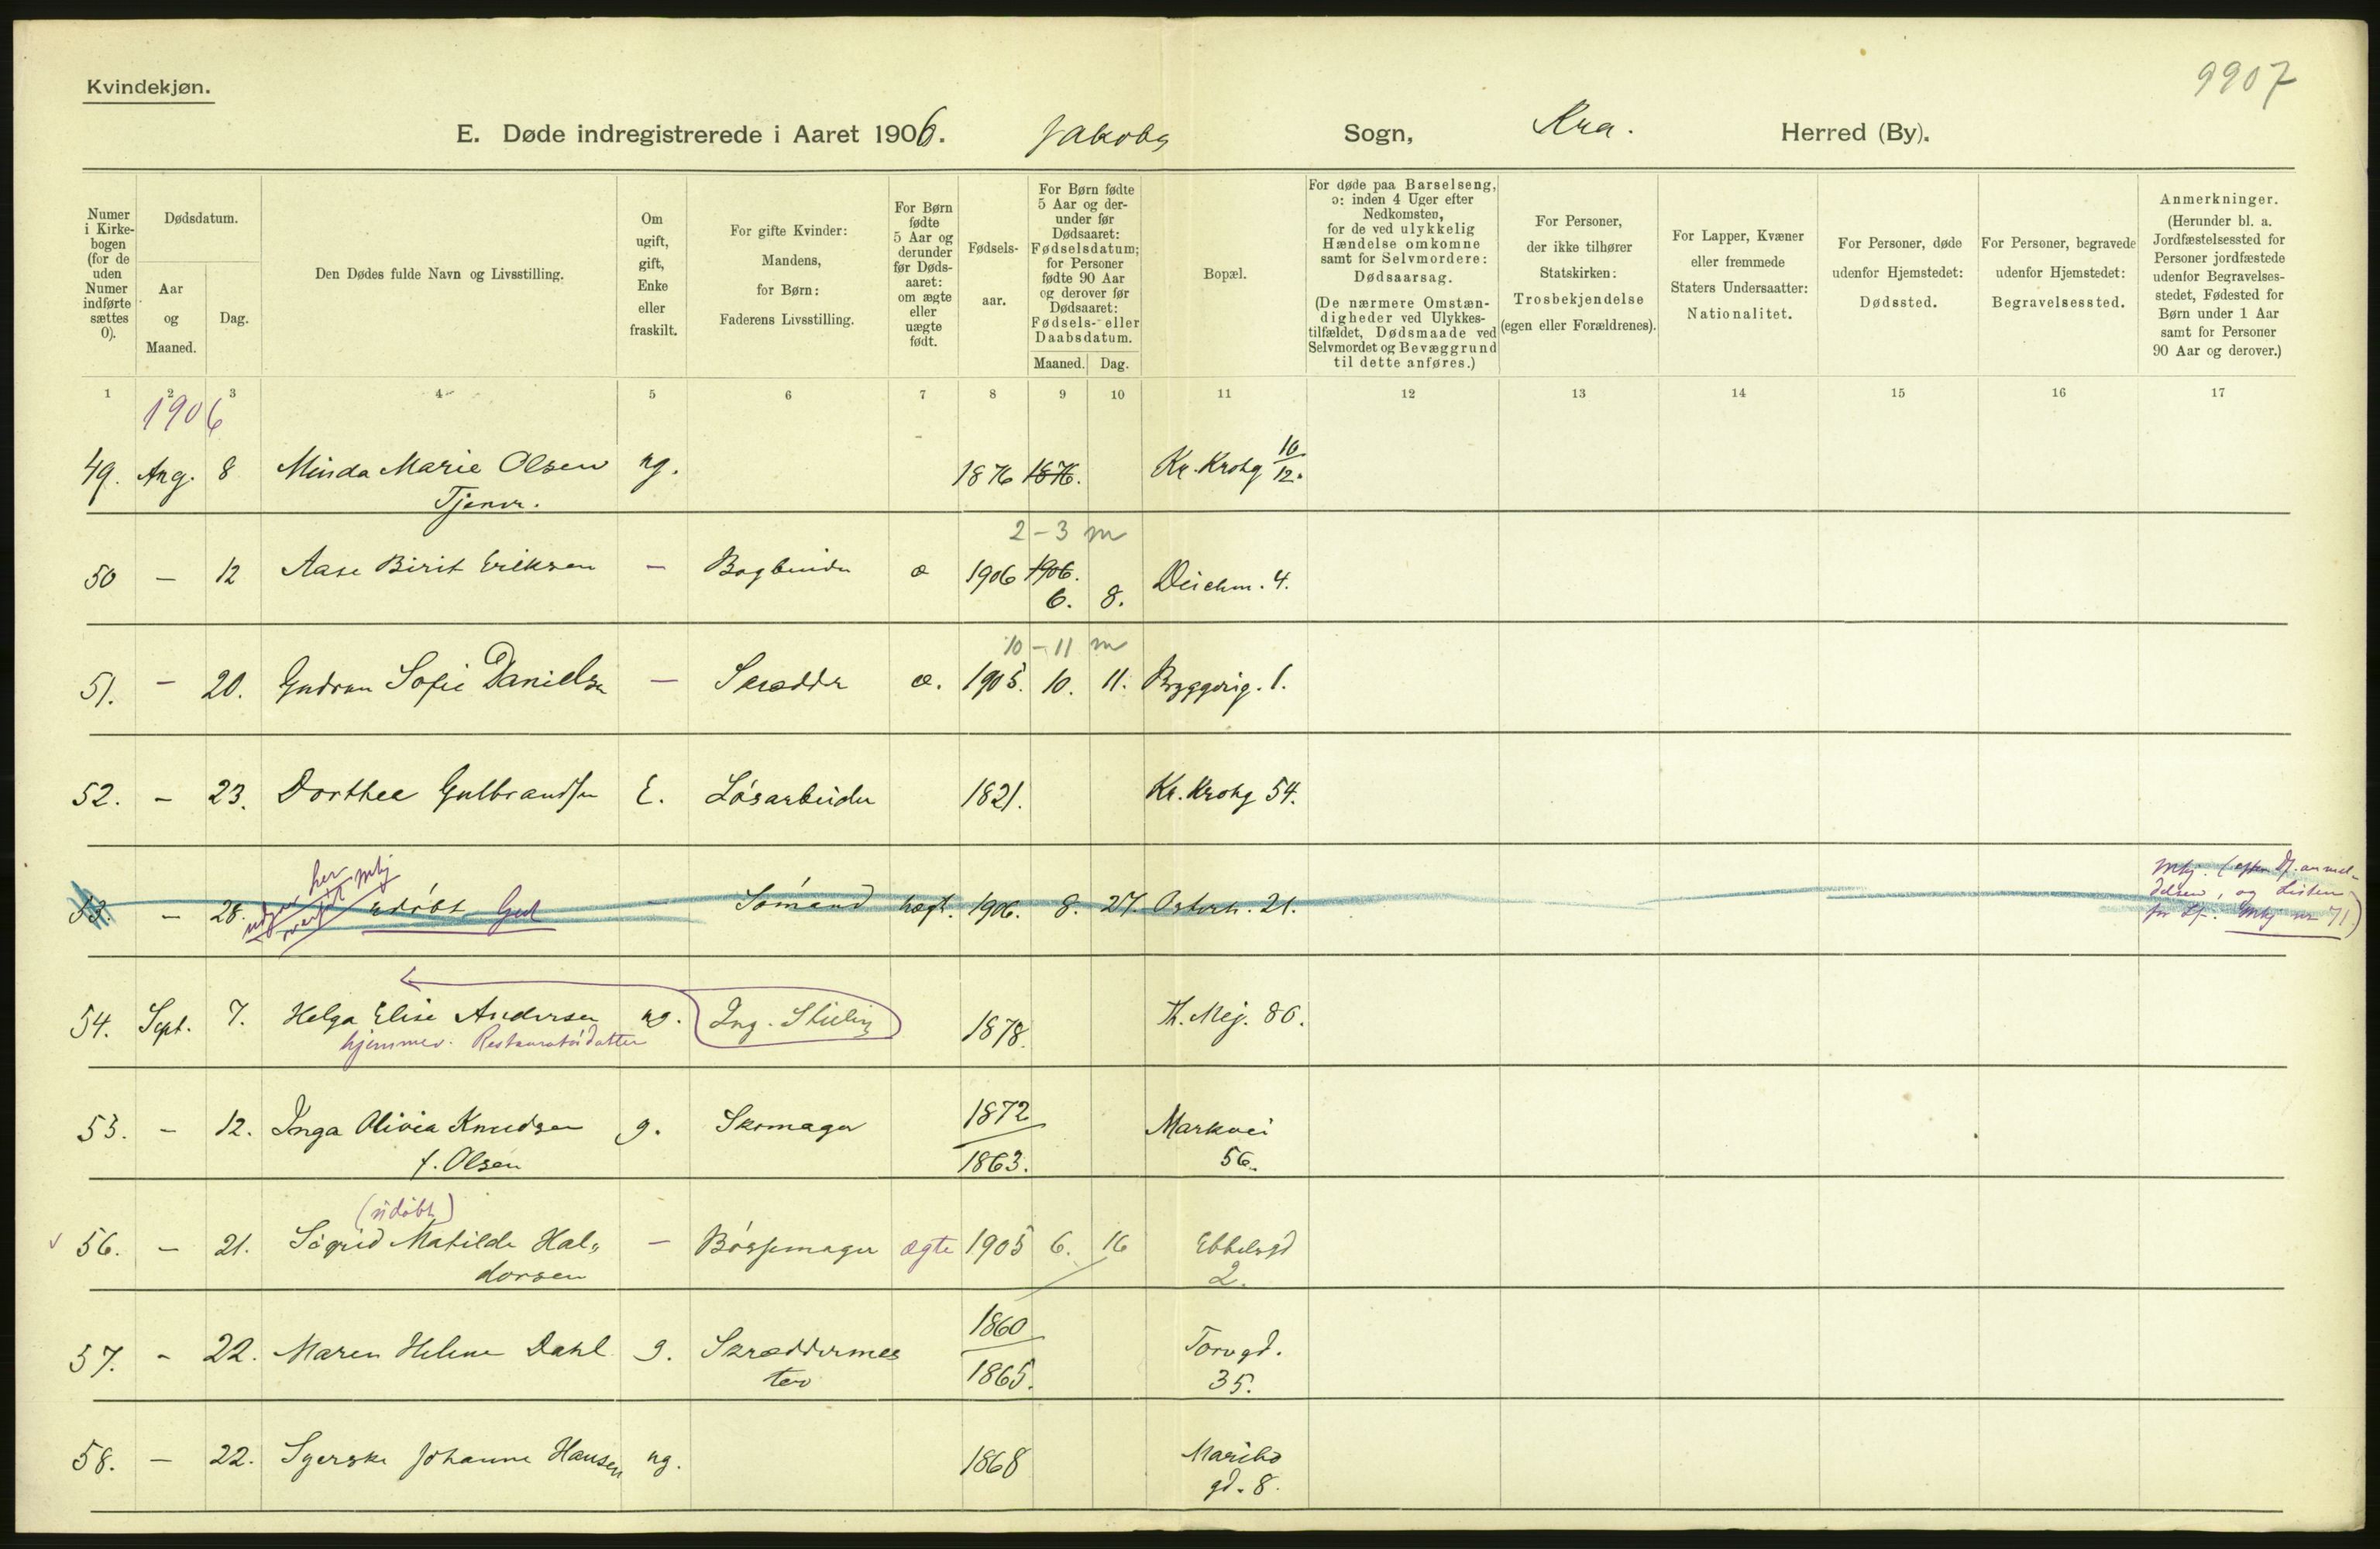 Kvindekjøn.
9907
E. Døde indregistrerede i Aaret 1906. Jakobs Sogn, Kra. Herred (By).
Numer i Kirkebogen (for de uden Numer indførte sættes 0).
Dødsdatum.
Aar og Maaned.
Dag.
Den Dødes fulde Navn og Livsstilling.
Om ugift, gift, Enke eller fraskilt.
For gifte Kvinder: Mandens, for Børn: Faderens Livsstilling.
For Børn fødte 5 Aar og derunder før Dødsaaret: om ægte eller uægte født.
Fødselsaar.
For Børn fødte 5 Aar og derunder før Dødsaaret: Fødselsdatum; for Personer fødte 90 Aar og derover før Dødsaaret: Fødsels- eller Daabsdatum.
Maaned. Dag.
Bopæl.
For døde paa Barselseng, ɔ: inden 4 Uger efter Nedkomsten, for de ved ulykkelig Hændelse omkomne samt for Selvmordere: Dødsaarsag.
(De nærmere Omstændigheder ved Ulykkestilfældet, Dødsmaade ved Selvmordet og Bevæggrund til dette anføres.)
For Personer, der ikke tilhører Statskirken: Trosbekjendelse (egen eller Forældrenes).
For Lapper, Kvæner eller fremmede Staters Undersaatter: Nationalitet.
For Personer, døde udenfor Hjemstedet: Dødssted.
For Personer, begravede udenfor Hjemstedet: Begravelsessted.
Anmerkninger.
(Herunder bl. a. Jordfæstelsessted for Personer jordfæstede udenfor Begravelsesstedet, Fødested for Børn under 1 Aar samt for Personer 90 Aar og derover.)
1 2 3 4 5 6 7 8 9 10 11 12 13 14 15 16 17
1906
49. Aug. 8 Minda Marie Olsen ug. 1876 1876. Kr. Krohg 10/12.
Tjener.
2-3 m
50 — 12 Aase Birit Eriksen — Bogbinder æ 1906 1906. Deichm. 4.
6. 8.
10-11 m
51. — 20. Gudrun Sofie Danielsen — Skrædder æ. 1905. 10. 11. Byggerig. 1.
52. — 23. Dorthea Gulbrandsen E. Løsarbeider 1821. Kr. Krohg 54.
her mkj
53. — 28. udøbt Gud — Sømand uægt. 1906. 8. 27. Osterh. 21.
Mkj. (efter Df. anmeldelsen, og Listen
for Lf. Mkj nr 71)
54. Sept. 7. Helga Elise Andersen ug. Ing. 1878. Th. Mej. 86.
hjemmev. Restauratørdatter
55. — 12. Inga Olivia Knudsen g. Skomager 1872 Markvei
f. Olsen 1863. 56.
(udøbt)
56. — 21. Sigrid Matilde Hal- — Børsemager ægte 1905 6. 16 Ebbelsgd
dorsen 2.
57. - 22. Maren Helene Dahl g. Skræddermes 1860 Torvgd.
ter 1865. 35.
58. — 22. Syerske Johanne Hansen ug. 1868 Maribo
gd. 8.